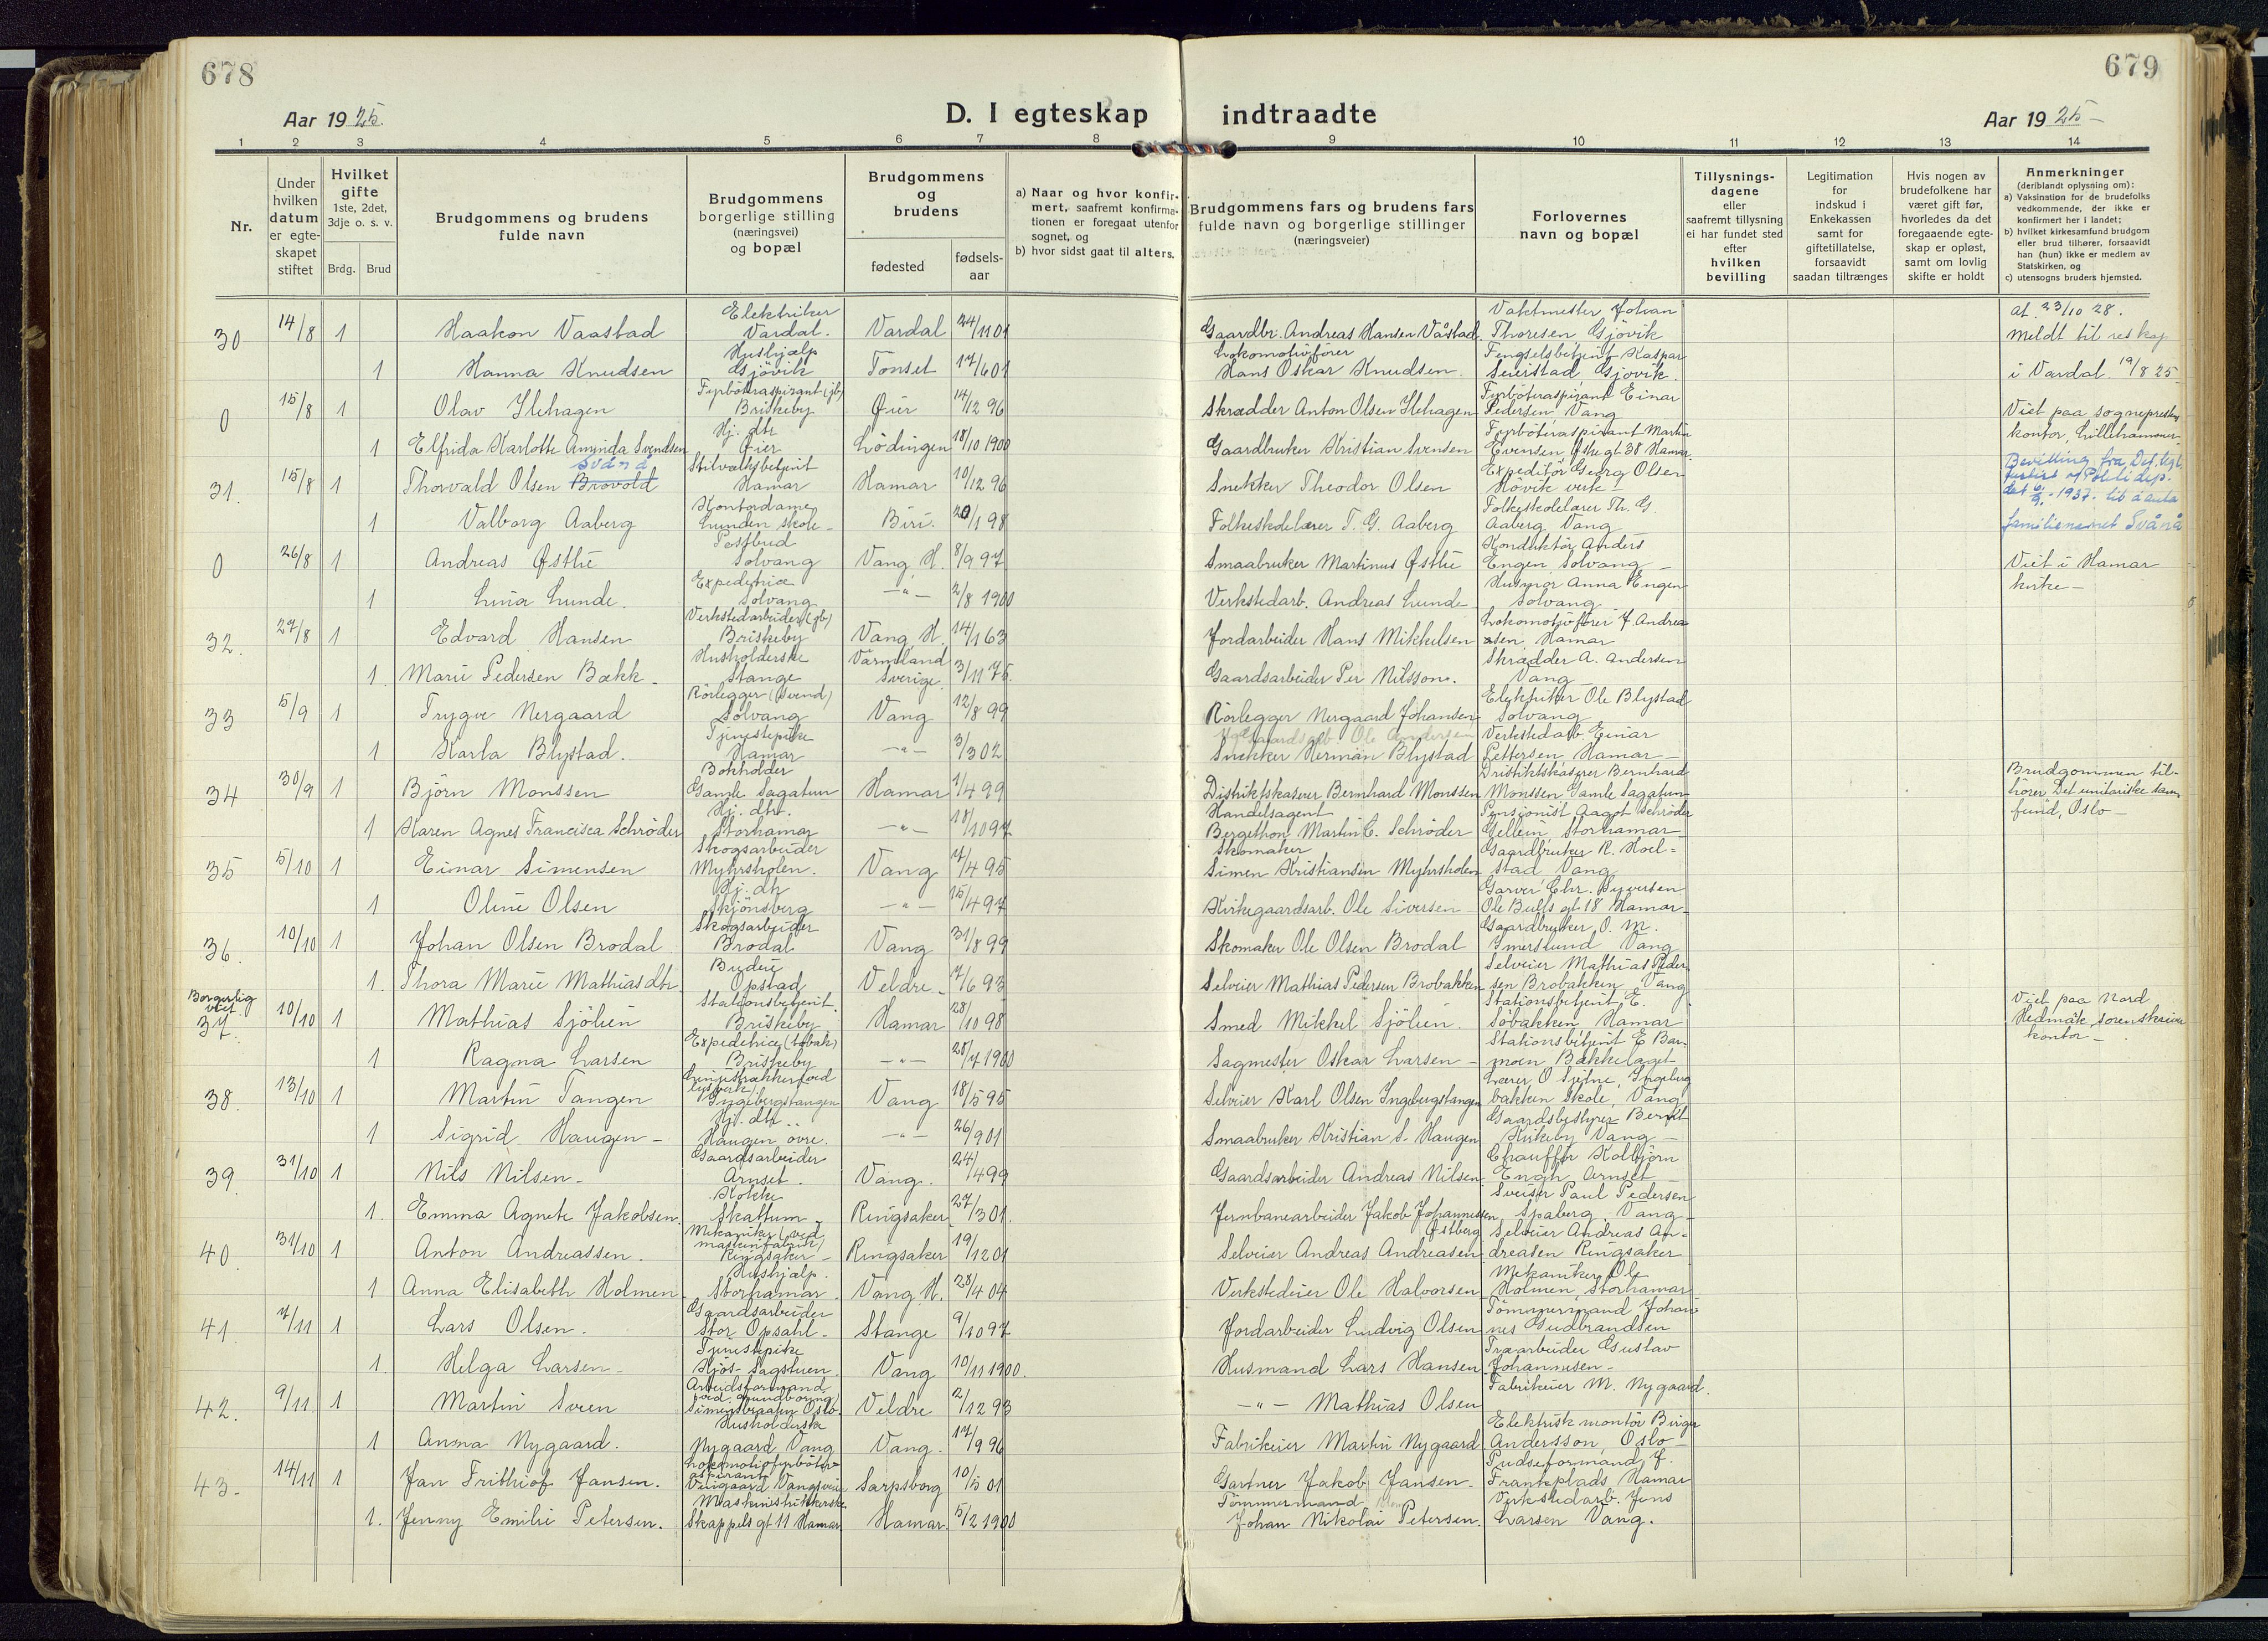 678
679
Aar 1925.
D. I egteskap indtraadte
Aar 1925 –
1 2 3 4 5 6 7 8 9 10 11 12 13 14
Nr.
Under hvilken datum er egteskapet stiftet
Hvilket gifte 1ste, 2det, 3dje o. s. v.
Brdg. Brud
Brudgommens og brudens fulde navn
Brudgommens borgerlige stilling (næringsvei) og bopæl
Brudgommens og brudens
fødested
fødselsaar
a) Naar og hvor konfirmert, saafremt konfirmationen er foregaat utenfor sognet, og
b) hvor sidst gaat til alters.
Brudgommens fars og brudens fars fulde navn og borgerlige stillinger (næringsveier)
Forlovernes navn og bopæl
Tillysningsdagene eller saafremt tillysning ei har fundet sted efter hvilken bevilling
Legitimation for indskud i Enkekassen samt for giftetillatelse, forsaavidt saadan tiltrænges
Hvis nogen av brudefolkene har været gift før, hvorledes da det foregaaende egteskap er opløst, samt om lovlig skifte er holdt
Anmerkninger (deriblandt oplysning om):
a) Vaksination for de brudefolks vedkommende, der ikke er konfirmert her i landet;
b) hvilket kirkesamfund brudgom eller brud tilhører, forsaavidt han (hun) ikke er medlem av Statskirken, og
c) utensogns bruders hjemsted.
30 14/8 1 Haakon Vaastad Elektriker Vardal. Vardal 24/11 01 Gaardbr. Andreas Hansen Våstad Vaktmester Johan Thoresen Gjövik at. 23/10 28. Meldt til
1 Hanna Knudsen Hushjælp Gjövik Tonset 17/6 01 Lokomotivfører Hans Oskar Knudsen. Fengselsbetjent Kaspar Gjøvik. i Vardal 19/8 25
0 15/8 1 Olav Ilehagen Fyrböteraspirant (jb) Briskeby Øier 14/12 96 Skrædder Anton Olsen Ilehagen Fyrböteraspirant Einar Pedersen, Vang Viet paa sogneprestens
1 Elfrida Karlotte Aminda Svendsen Hj. dtr Øier Lödingen 18/10 1900 Gaardbruker Kristian Svensen Fyrböteraspirant Martin Evensen, gt. 38 Hamar. kontor, Lillehammer.
31. 15/8 1 Thorvald Olsen Brovold Svånå Hamar Hamar 10/12 96 Snekker Theodor Olsen Expeditör Georg Olsen Hövik verk Bevilling fra Det. kgl. Politidep. 1937. til å anta
1 Valborg Aaberg Kontordame Lunden skole - Biri. 20/1 98 Folkeskolelærer T. G. Aaberg Folkeskolelærer Th. G. Aaberg, Vang familienavnet Svånå
0 26/8 1 Andreas Østlie Postbud Solvang Vang, H. 8/9 97 Smaabruker Martinus Østlie Konduktör Anders Engen, Solvang – Viet i Hamar
1 Lina Lunde. Expeditrice Solvang – " – 2/8 1900 Verkstedarb. Andreas Lunde – Husmor Anna Engen Solvang kirke –
32. 27/8 1 Edvard Hansen Verkstedarbeider (jb) Briskeby Vang, H. 14/1 63 Jordarbeider Hans Mikkelsen Lokomotivfører J. Andreasen, Hamar
1 Marie Pedersen Bækk – Husholderske Stange Värmland Sverige 3/11 75. Gaardsarbeider Per Nilsson. Skrædder A. Andersen Vang –
33 5/9 1 Trygve Nergaard Rörlegger (svend) Solvang Vang 12/8 99 Rörlegger Nergaard Johansen Elektriker Ole Blystad Solvang
1 Karla Blystad. Tjenestepike Hamar – " – 3/3 02 Snekker Herman Blystad Verkstedarb. Einar Pettersen, Hamar –
34 30/9 1 Björn Monssen Bokholder Gamle Sagatun Hamar 1/4 99 Distriktskaserer Bernhard Monssen Distriktskaserer Bernhard Monssen Gamle Sagatun Brudgommen tilhörer Det unitariske sam-
1 Karen Agnes Francisca Schröder Hj. dtr. Storhamar – " – 18/10 97 Handelsagent Bergethon Martin C. Schröder Pensjonist Aagot Schröder Gellein, Storhamar fund, Oslo –
35 5/10 1 Einar Simensen Skogsarbeider Myhrsholen. Vang 7/4 95 Skomaker Simen Kristiansen Myhrsholen Gaardbruker R. Hoelstad Vang
1 Oline Olsen Hj. dtr Skjönsberg – " – 15/4 97 Kirkegaardsarb. Ole Siversen – Garver Chr. Syversen Ole Bulls gt 18 Hamar.
36. 10/10 1 Johan Olsen Brodal Skogsarbeider Brodal Vang 31/8 99 Skomaker Ole Olsen Brodal Gaardbruker O. M. Imerslund Vang
1. Thora Marie Mathiasdtr Budeie Opstad Veldre – 7/6 93 Selveier Mathias Pedersen Brobakken Selveier Mathias Pedersen Brobakken, Vang
Borgerlig viet. 37. 10/10 1 Mathias Sjölien Stationsbetjent. Briskeby Hamar 28/10 98 Smed Mikkel Sjölien. Stationsbetjent E. Söbakken Hamar Viet paa Nord Hedmark sorenskriver
1 Ragna Larsen Expeditrice (tobak) Briskeby – " – 28/7 1900 Sagmester Oskar Larsen – Stationsbetjent E Barmoen Bækkelaget kontor –
38. 13/10 1 Martin Tangen Linjestrækker ved lysverk Ingebergstangen Vang 18/5 95 Selveier Karl Olsen Ingebergstangen Lærer O Sjetne, Ingebergbakken skole, Vang
1 Sigrid Haugen – Hj. dtr. Haugen övre. – " – 26/9 01 Smaabruker Kristian S. Haugen Gaardsbestyrer Berndt Kirkeby Vang –
39. 31/10 1 Nils Nilsen – Gaardsarbeider Arnset. Vang. 24/4 99 Gaardsarbeider Andreas Nilsen Chauffør Kolbjörn Engh, Arnset –
1. Emma Agnete Jakobsen. Kokke Skattum – Ringsaker 27/3 01. Jernbanearbeider Jakob Johannessen Østberg Sveiser Paul Pedersen Spaberg, Vang –
40. 31/10 1 Anton Andreassen. Mekaniker (ved maskinfabrik) Ringsaker – Ringsaker 19/12 01 Selveier Andreas Andreasen Selveier Andreas Andreasen Ringsaker
1 Anna Elisabeth Holmen Hushjælp. Storhamar Vang H. 28/4 04 Verkstedeier Ole Halvorsen Mekaniker Ole Holmen, Storhamar
41. 7/11 1 Lars Olsen. Gaardsarbeider Stor Opsahl – Stange 9/10 97 Jordarbeider Ludvig Olsen Tömmermand Johannes Gudbrandsen
1. Helga Larsen – Tjenestepike Hjös-Sagstuen Vang 10/11 1900. Husmand Lars Hansen Træarbeider Gustav Johannesen –
42. 9/11 1 Martin Sveen Arbeidsformand ved grundboring Oslo. Veldre 2/12 93 – " – Mathias Olsen Fabrikeier M. Nygaard.
1 Anna Nygaard. Husholderske Nygaard, Vang Vang. 17/9 96 Fabrikeier Martin Nygaard Elektrisk montör Birger Andersson, Oslo –
43. 14/11 1 Jan Frithiof Jansen. Lokomotivfyrböteraspirant Sarpsborg 10/5 01 Gartner Jakob Jansen – Pudseformand J. Frankplads Hamar
1. Jenny Emilie Petersen. Maskinstrikkerske Skappels gt 11 Hamar Hamar. 5/2 1900 Tömmermand Johan Nikolai Petersen. Verkstedarb. Jens Larsen Vang.